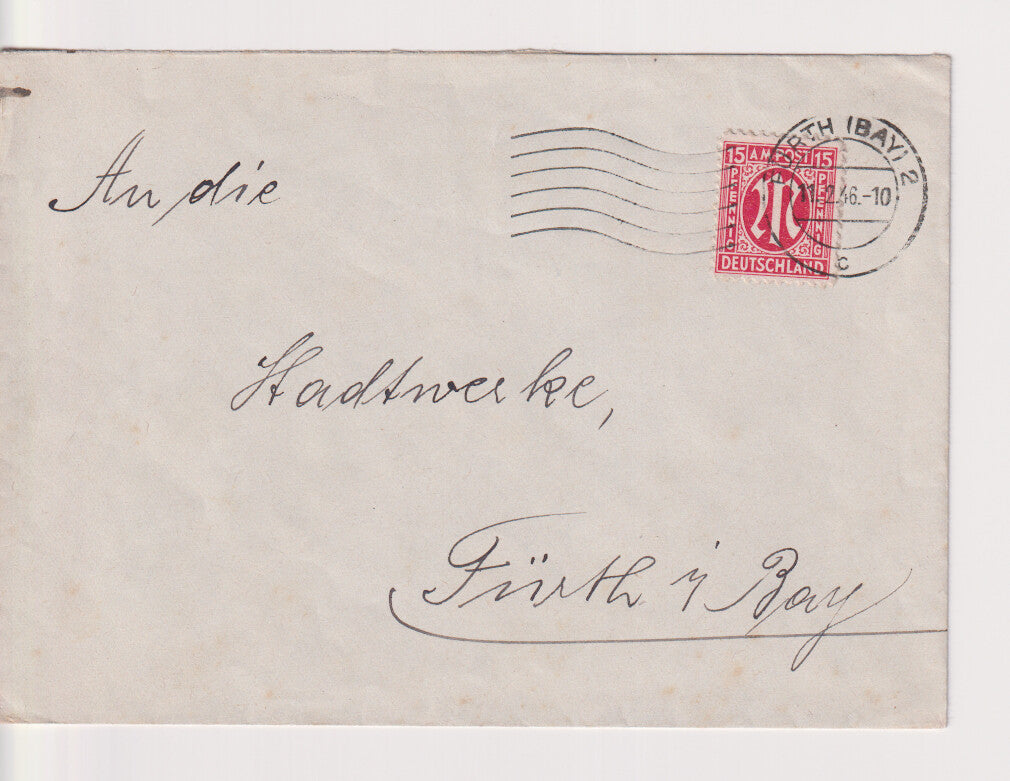 An die
Stadtwerke,
Fürth i Bay
FÜRTH (BAY) 2
11.-2.46.-10
c
15 AM POST 15
PFENNIG
PFENNIG
M
DEUTSCHLAND